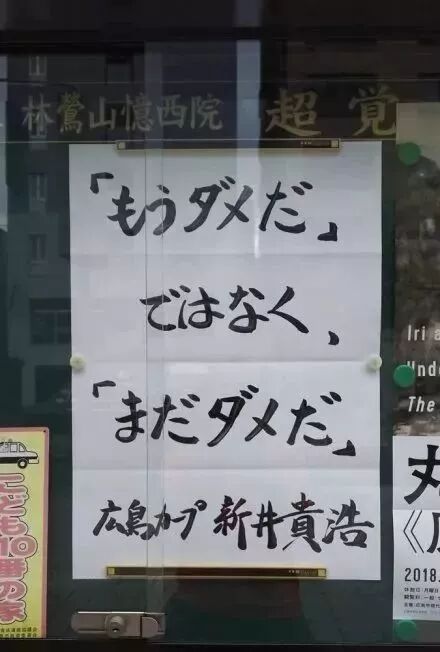 林鶯山憶西院 超覚
「もうダメだ」
ではなく、
「まだダメだ」
広島カープ 新井貴浩
こども110番の家
Iri a
Unde
The
丸
《原
2018.